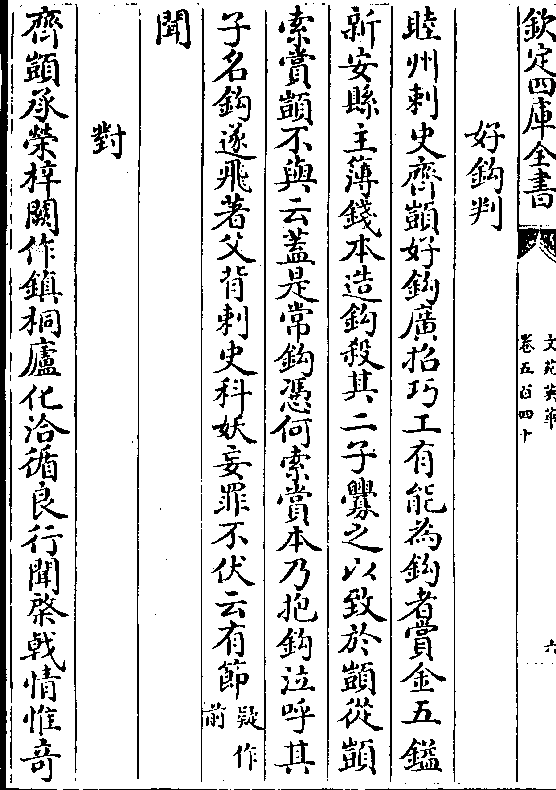 欽定四庫全書
文苑英華
卷五百四十
六
好鈎判
睦州刺史齊顗好鈎廣招巧工有能為鈎者賞金五鎰
新安縣主薄錢本造鈎殺其二子釁之以致於顗從顗
索賞顗不與云蓋是常鈎憑何索賞本乃抱鈎泣呼其
子名鈎遂飛著父背刺史科妖妄罪不伏云有節疑作前
聞
對
齊顗承榮梓闕作鎮桐廬化洽循良行聞棨戟情惟奇